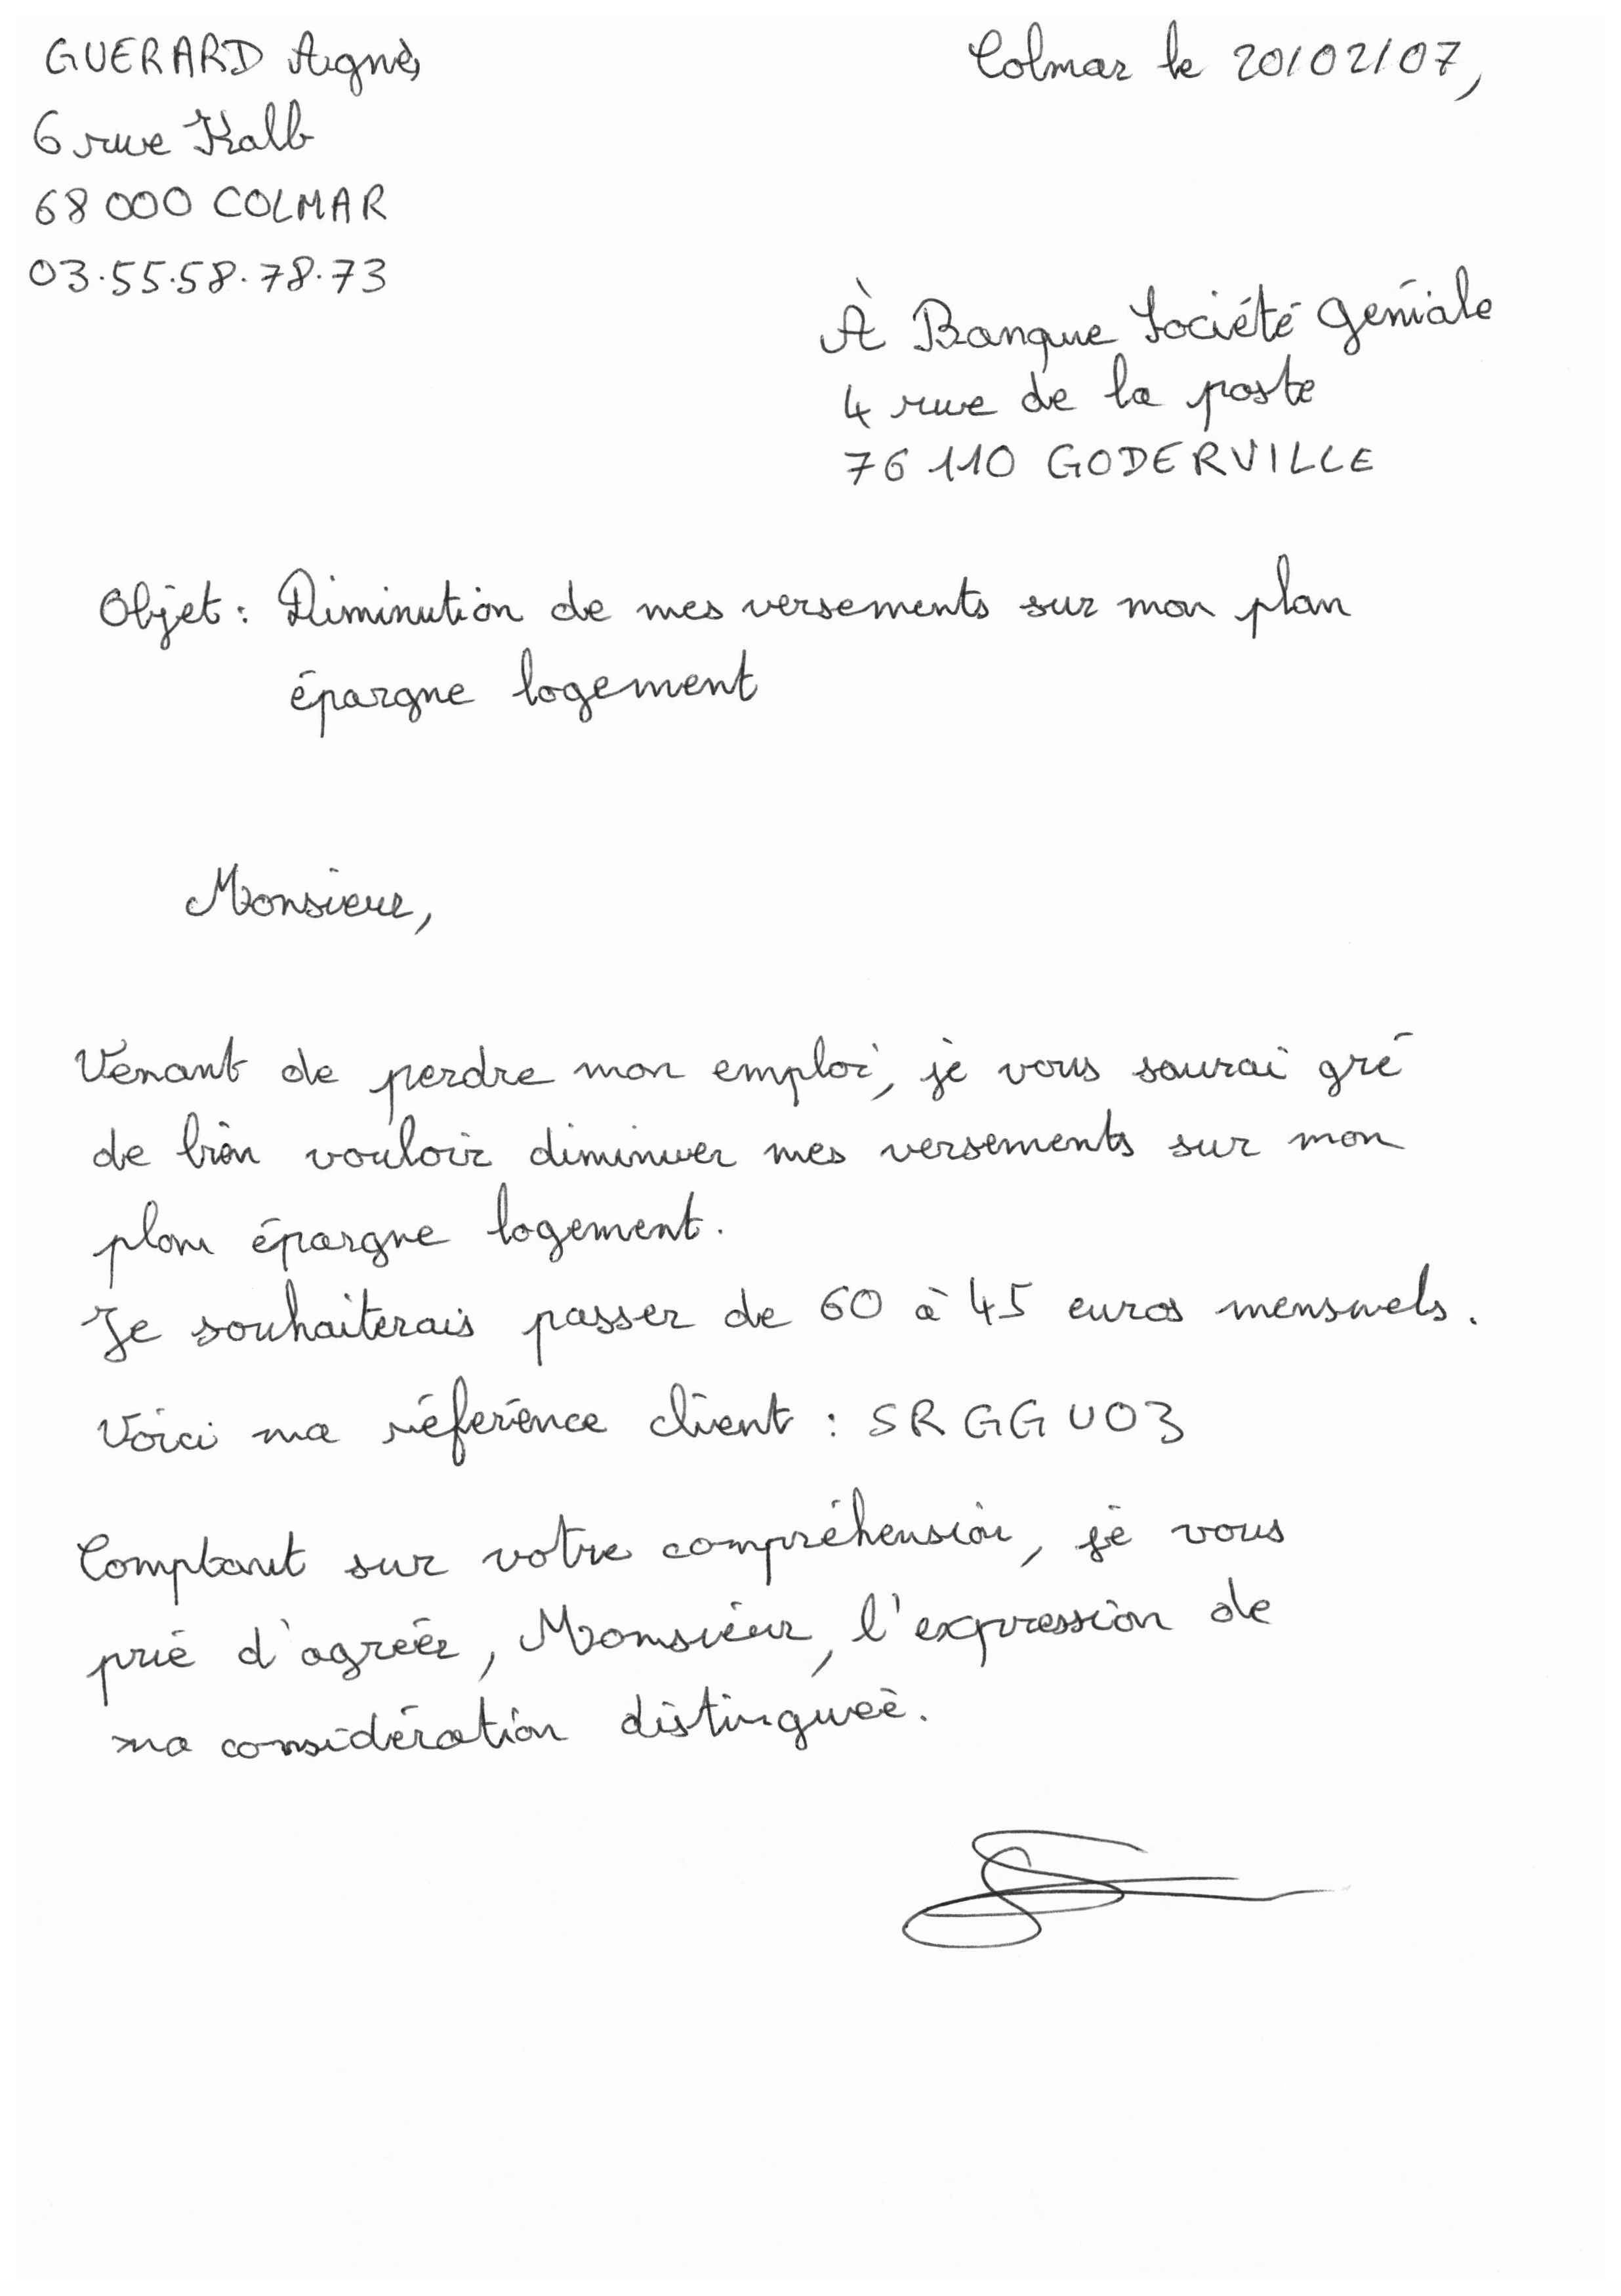 GUERARD Agnès
Colmar le 20/02/07,
6 rue Kalb
68 000 COLMAR
03.55.58.78.73
À Banque Société Géniale
4 rue de la poste
76 110 GODERVILLE
Objet : Diminution de mes versements sur mon plan
épargne logement
Monsieur,
Venant de perdre mon emploi, je vous saurai gré
de bien vouloir diminuer mes versements sur mon
plan épargne logement.
Je souhaiterais passer de 60 à 45 euros mensuels.
Voici ma référence client : SRGGU03
Comptant sur votre compréhension, je vous
prie d'agréer, Monsieur, l'expression de
ma considération distinguée.